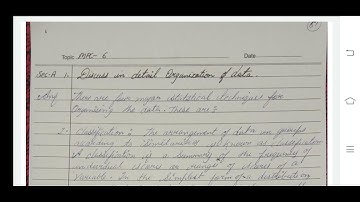 Topic MPC-6 Date
Sec-A 1. Discuss in detail Organisation of data.
Ans There are four major statistical techniques for
Organising the data. These are:
1- Classification: The arrangement of data in groups
according to similarities is known as classification
A classification is a summary of the frequency of
individual scores or ranges of scores of a
Variable. In the simplest form of a distribution